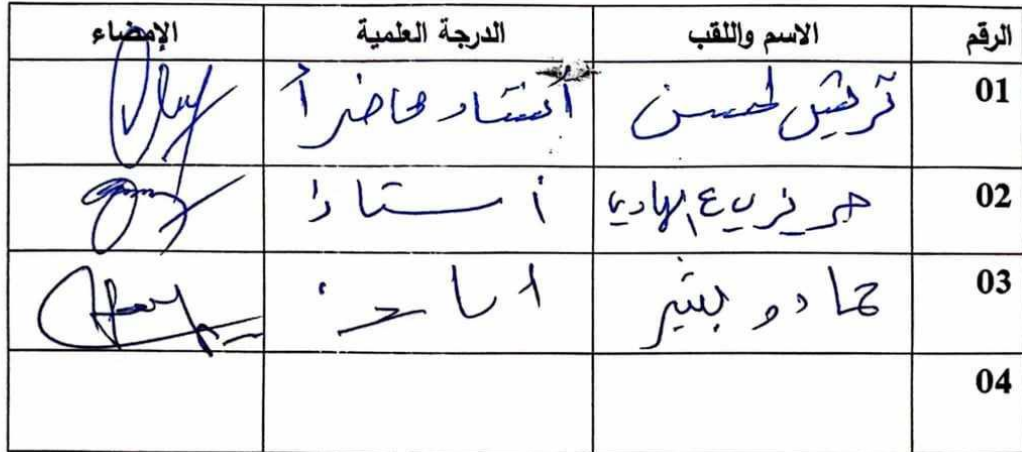 الرقم الاسم واللقب الدرجة العلمية الإمضاء
01 قريش لحسن أستاذ محاضر أ
02 ع الهادي أستاذ
03 حمادو بشير
04